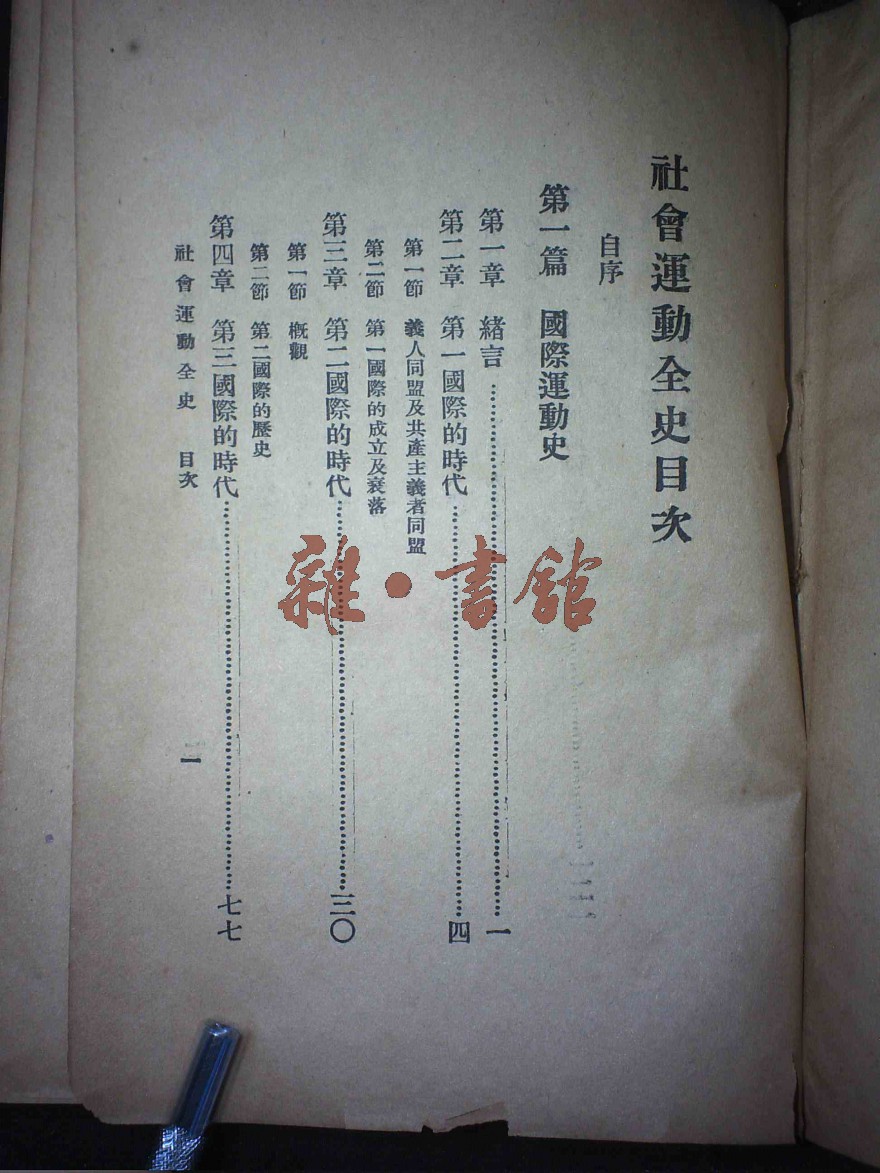 社會運動全史目次
自序
第一篇 國際運動史
第一章 緒言…………一
第二章 第一國際的時代…………四
第一節 義人同盟及共產主義者同盟
第二節 第一國際的成立及衰落
第三章 第二國際的時代…………三〇
第一節 概觀
第二節 第二國際的歷史
第四章 第三國際的時代…………七七
社會運動全史 目次
一
雜·書館